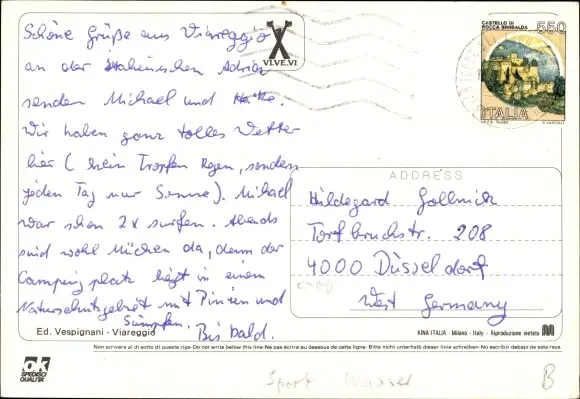 Schöne Grüße aus Viareggio
an der italienischen Adria
senden Michael und Heike.
Wir haben ganz tolles Wetter
hier (kein Tropfen Regen, sondern
jeden Tag nur Sonne). Michael
war schon 2x surfen. Abends
sind wohl Mücken da, denn der
Campingplatz liegt in einem
Naturschutzgebiet mit Pinien und
Sümpfen.
Bis bald.
Ed. Vespignani - Viareggio
VI.VE.VI
CASTELLO DI
ROCCA SINIBALDA
550
ITALIA
ADDRESS
Hildegard Gollnick
Torfbruchstr. 208
4000 Düsseldorf
West Germany
KINA ITALIA - Milano - Italy - Riproduzione vietata
Non scrivere al di sotto di questa riga-Do not write below this line-Ne pas écrire au dessous de cette ligne- Bitte nicht unterhalb dieser linie schreiben-No escribir debajo de esta raya
OK
SPEDISCI
QUALITA'
Sport Wasser
B